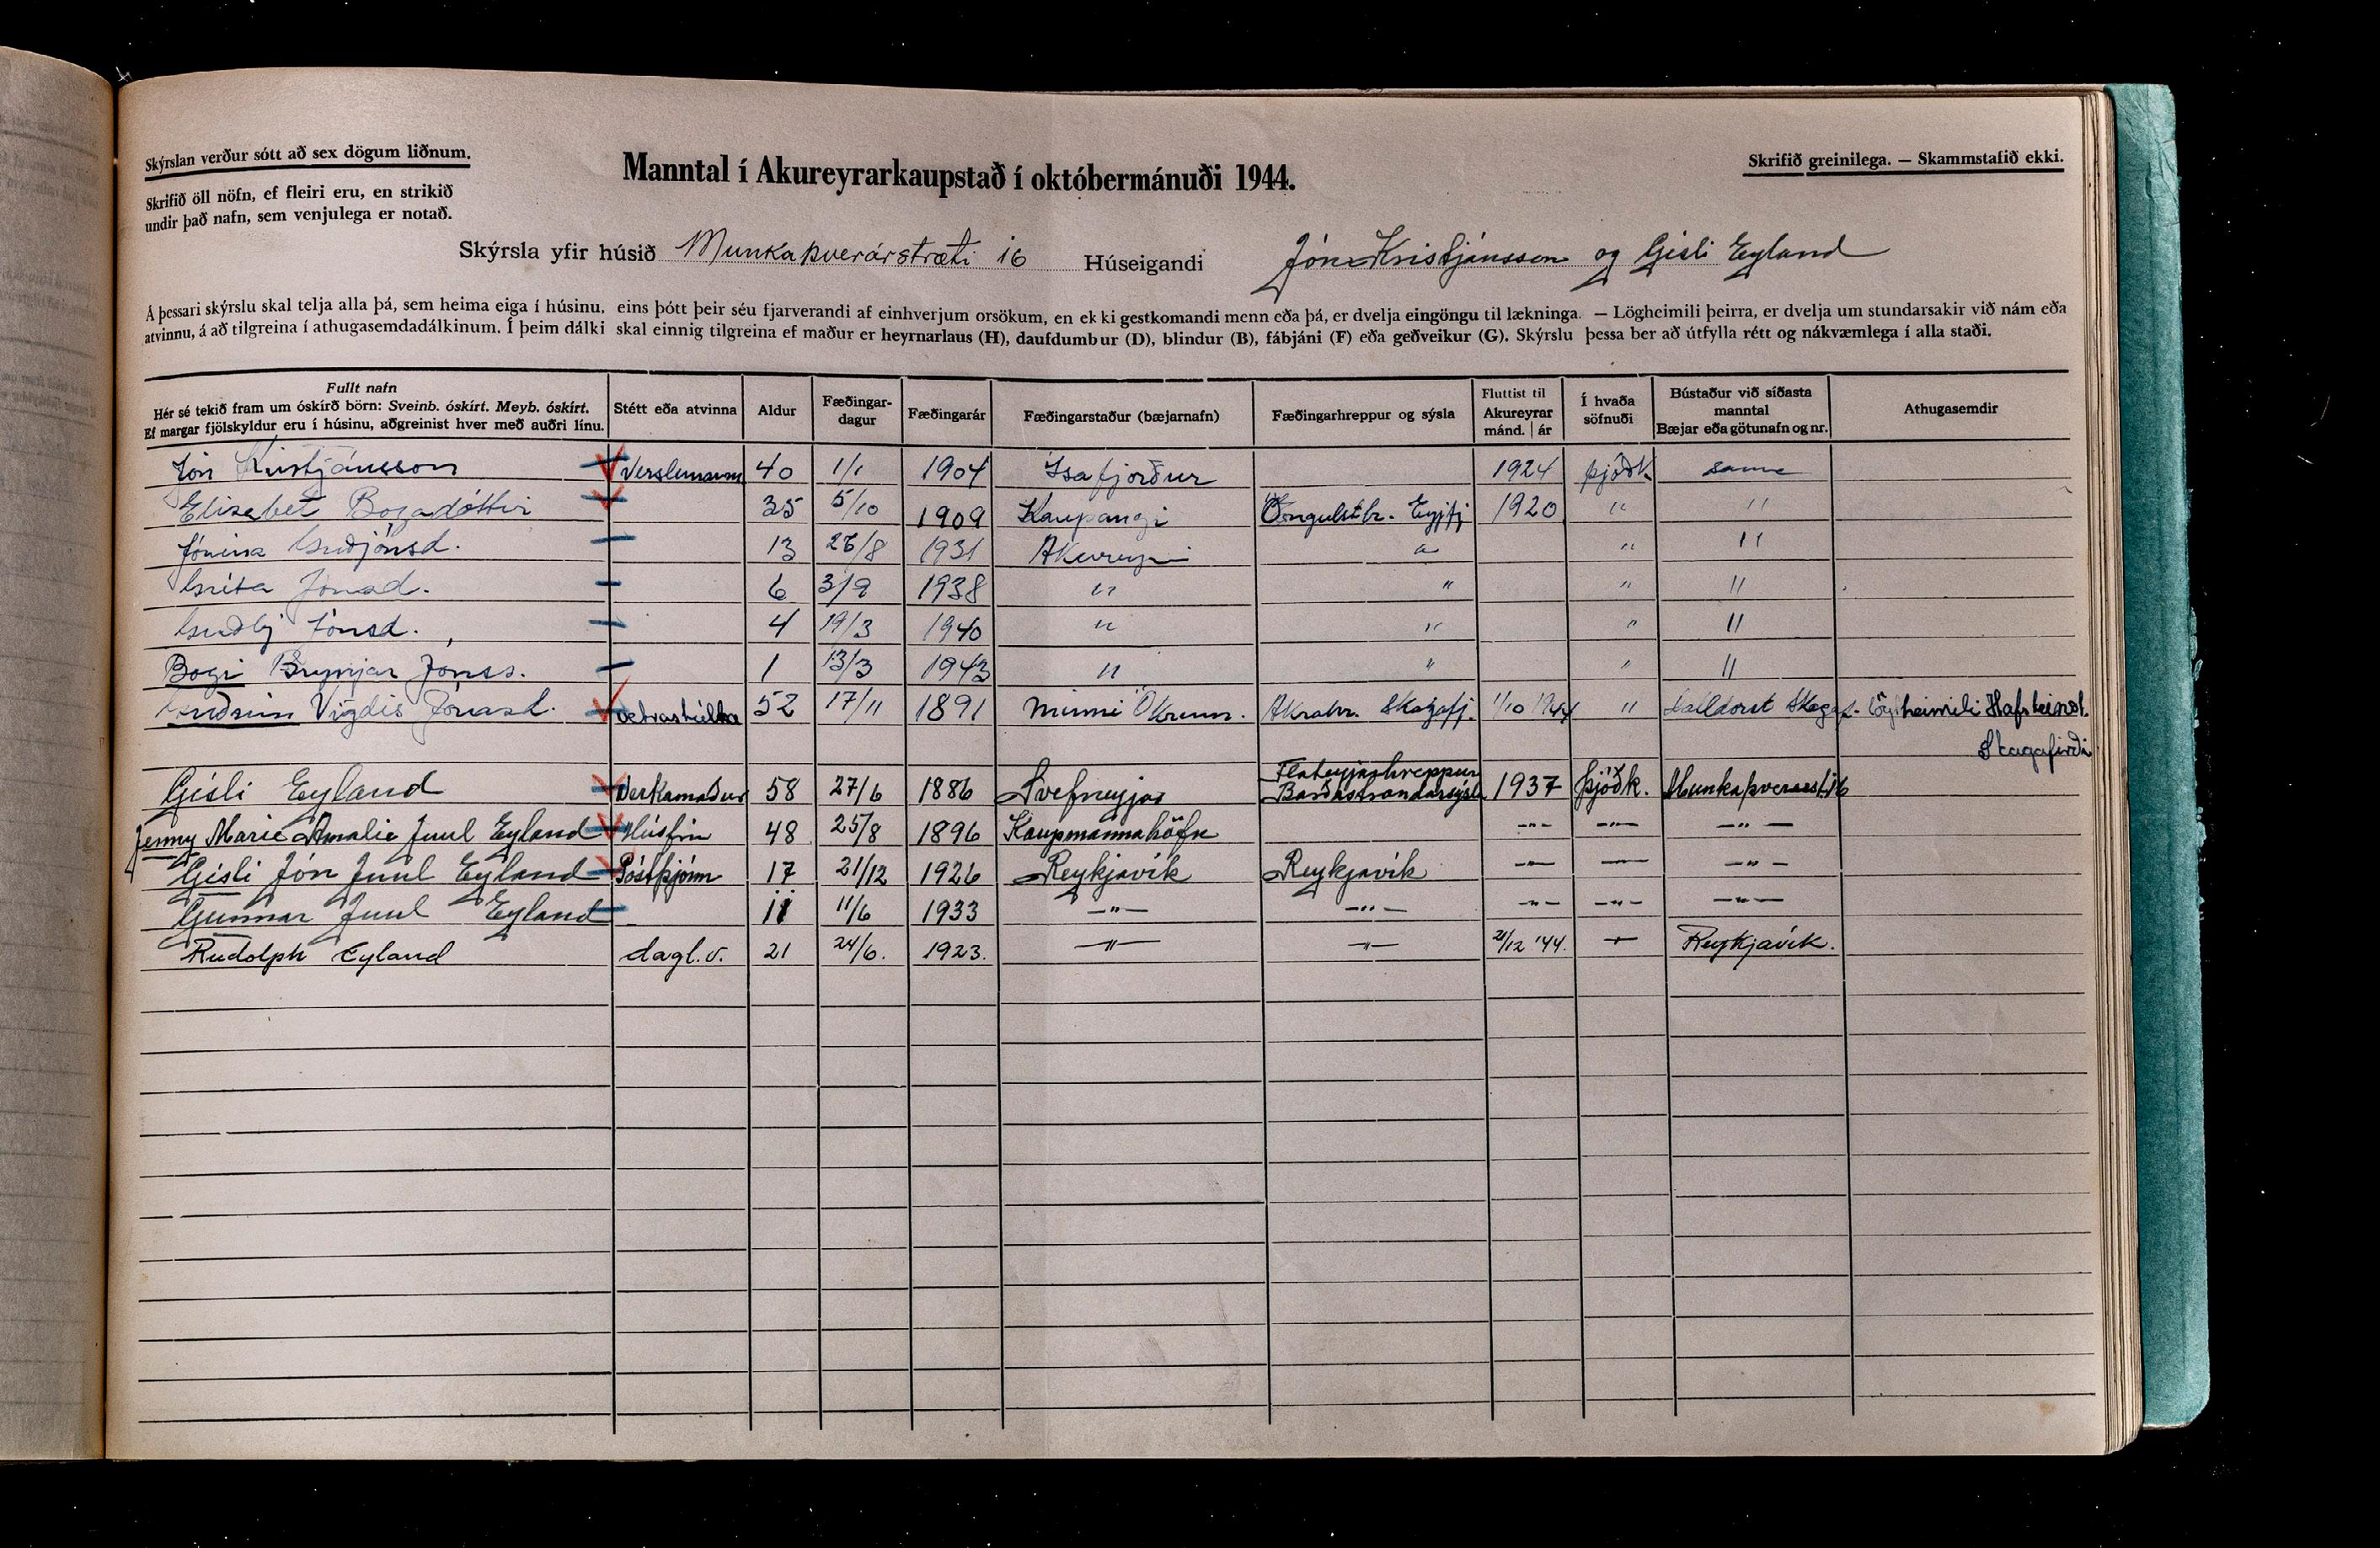 Skýrslan verður sótt að sex dögum liðnum.
Skrifið öll nöfn, ef fleiri eru, en strikið
undir það nafn, sem venjulega er notað.
Manntal í Akureyrarkaupstað í októbermánuði 1944.
Skrifið greinilega. — Skammstafið ekki.
Skýrsla yfir húsið Munkaþverárstræti 16 Húseigandi Jón Kristjánsson og Gísli Eyland
Á þessari skýrslu skal telja alla þá, sem heima eiga í húsinu, eins þótt þeir séu fjarverandi af einhverjum orsökum, en ekki gestkomandi menn eða þá, er dvelja eingöngu til lækninga. — Lögheimili þeirra, er dvelja um stundarsakir við nám eða
atvinnu, á að tilgreina í athugasemdadálkinum. Í þeim dálki skal einnig tilgreina ef maður er heyrnarlaus (H), daufdumbur (D), blindur (B), fábjáni (F) eða geðveikur (G). Skýrslu þessa ber að útfylla rétt og nákvæmlega í alla staði.
Fullt nafn
Hér sé tekið fram um óskírð börn: Sveinb. óskírt. Meyb. óskírt.
Ef margar fjölskyldur eru í húsinu, aðgreinist hver með auðri línu.
Stétt eða atvinna
Aldur
Fæðingar-
dagur
Fæðingarár
Fæðingarstaður (bæjarnafn)
Fæðingarhreppur og sýsla
Fluttist til
Akureyrar
mánd. | ár
Í hvaða
söfnuði
Bústaður við síðasta
manntal
Bæjar eða götunafn og nr.
Athugasemdir
Jón Kristjánsson Verslunarm 40 1/1 1904 Ísafjörður 1924 þjóðk sama
Elisabet Bogadóttir 35 5/10 1909 Kaupangi Öngulstbr. Eyjfj 1920 " "
Jónína Guðjónsd. 13 26/8 1931 Akureyri " " "
Gréta Jónsd. 6 3/9 1938 " " " "
Guðbj Jónsd. 4 19/3 1940 " " " "
Bogi Brynjar Jónss. 1 13/3 1943 " " " "
Guðrún Vigdís Jónasd. vetrastúlka 52 17/11 1891 Minni Ökrum. Akrahr. Skagafj. 1/10 1944 " Halldorst Skagaf. lögheimili Hafsteinst.
Skagafirði
Gísli Eyland Verkamaður 58 27/6 1886 Svefneyjar Flateyjarhreppur Barðastrandarsýsla 1937 þjóðk. Munkaþverárst. 16
Jenny Marie Amalie Juul Eyland Húsfrú 48 25/8 1896 Kaupmannahöfn —"— —"— —"—
Gísli Jón Juul Eyland Póstþjónn 17 21/12 1926 Reykjavík Reykjavík —"— —"— —"—
Gunnar Juul Eyland 11 11/6 1933 —"— —"— —"— —"— —"—
Rudolph Eyland dagl.v. 21 24/6. 1923. —"— —"— 21/12 '44. —"— Reykjavík.